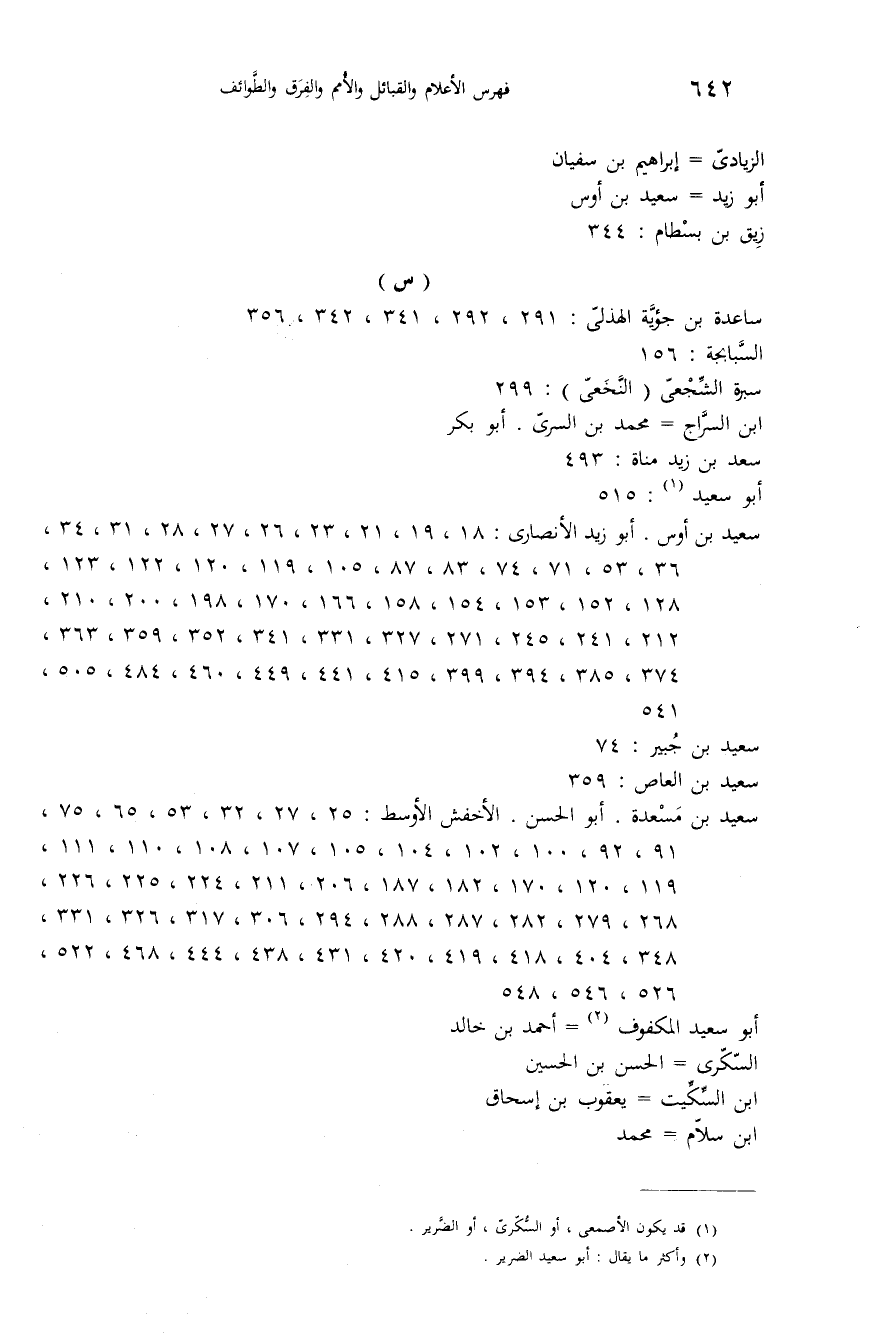 ٦٤٢ فهرس الأعلام والقبائل والأُمم والفِرَق والطَّوائف
الزيادىّ = إبراهيم بن سفيان
أبو زيد = سعيد بن أوس
زِيق بن بسْطام : ٣٤٤
( س )
ساعدة بن جؤيَّة الهذلىّ : ٢٩١ ، ٢٩٢ ، ٣٤١ ، ٣٤٢ ، ٣٥٦
السَّبابجة : ١٥٦
سبرة الشِّجْعىّ ( النَّخَعىّ ) : ٢٩٩
ابن السرَّاج = محمد بن السرىّ . أبو بكر
سعد بن زيد مناة : ٤٩٣
أبو سعيد (١) : ٥١٥
سعيد بن أوس . أبو زيد الأنصارى : ١٨ ، ١٩ ، ٢١ ، ٢٣ ، ٢٦ ، ٢٧ ، ٢٨ ، ٣١ ، ٣٤ ،
٣٦ ، ٥٣ ، ٧١ ، ٧٤ ، ٨٣ ، ٨٧ ، ١٠٥ ، ١١٩ ، ١٢٠ ، ١٢٢ ، ١٢٣ ،
١٢٨ ، ١٥٢ ، ١٥٣ ، ١٥٤ ، ١٥٨ ، ١٦٦ ، ١٧٠ ، ١٩٨ ، ٢٠٠ ، ٢١٠ ،
٢١٢ ، ٢٤١ ، ٢٤٥ ، ٢٧١ ، ٣٢٧ ، ٣٣١ ، ٣٤١ ، ٣٥٢ ، ٣٥٩ ، ٣٦٣ ،
٣٧٤ ، ٣٨٥ ، ٣٩٤ ، ٣٩٩ ، ٤١٥ ، ٤٤١ ، ٤٤٩ ، ٤٦٠ ، ٤٨٤ ، ٥٠٥ ،
٥٤١
سعيد بن جُبير : ٧٤
سعيد بن العاص : ٣٥٩
سعيد بن مَسْعدة . أبو الحسن . الأخفش الأوسط : ٢٥ ، ٢٧ ، ٣٢ ، ٥٣ ، ٦٥ ، ٧٥ ،
٩١ ، ٩٢ ، ١٠٠ ، ١٠٢ ، ١٠٤ ، ١٠٥ ، ١٠٧ ، ١٠٨ ، ١١٠ ، ١١١ ،
١١٩ ، ١٢٠ ، ١٧٠ ، ١٨٢ ، ١٨٧ ، ٢٠٦ ، ٢١١ ، ٢٢٤ ، ٢٢٥ ، ٢٢٦ ،
٢٦٨ ، ٢٧٩ ، ٢٨٢ ، ٢٨٧ ، ٢٨٨ ، ٢٩٤ ، ٣٠٦ ، ٣١٧ ، ٣٢٦ ، ٣٣١ ،
٣٤٨ ، ٤٠٤ ، ٤١٨ ، ٤١٩ ، ٤٢٠ ، ٤٣١ ، ٤٣٨ ، ٤٤٤ ، ٤٦٨ ، ٥٢٢ ،
٥٢٦ ، ٥٤٦ ، ٥٤٨
أبو سعيد المكفوف (٢) = أحمد بن خالد
السّكّرى = الحسن بن الحسين
ابن السِّكِّيت = يعقوب بن إسحاق
ابن سلاّم = محمد
(١) قد يكون الأصمعى ، أو السُّكّرىّ ، أو الضَّرير .
(٢) وأكثر ما يقال : أبو سعيد الضرير .